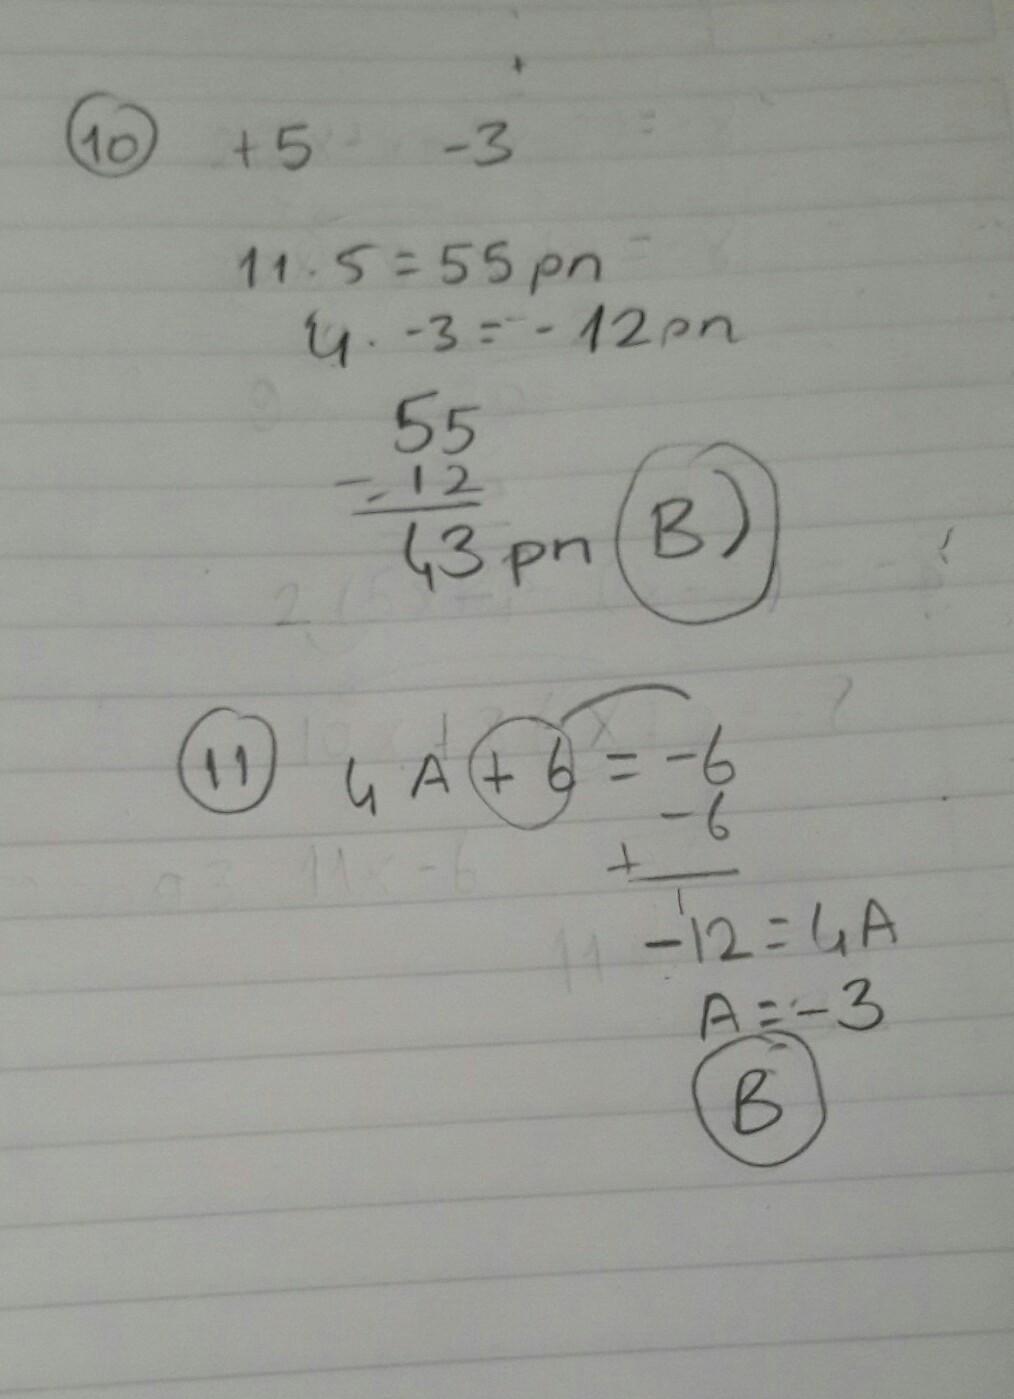 10 +5 -3
11.5=55pn
4. -3=-12pn
55
-12
43pn B)
11 4A+6=-6
-6
+
-12=4A
A=-3
B